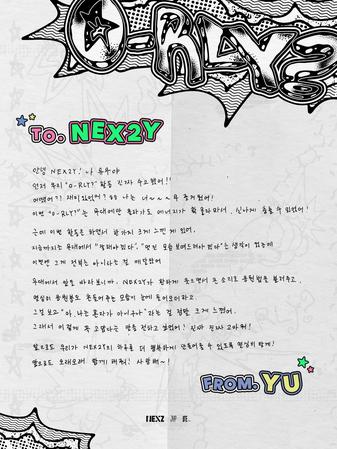 O-RLY?
TO. NEX2Y
안녕 NEX2Y! 나 유우야
먼저 우리 "O-RLY?" 활동 진짜 수고했어!!
어땠어?? 재미있었어? 나는 너~~~무 즐거웠어!
이번 "O-RLY?"는 무대에만 올라가도 에너지가 확 올라와서, 신나게 춤출 수 있었어!
근데 이번 활동은 하면서 한가지 크게 느낀 게 있어.
지금까지는 무대에서 "잘해야겠다", "멋진 모습 보여드려야겠다"는 생각이 있는데
이번엔 그게 전부는 아니라는 걸 깨달았어
무대에서 앞을 바라보니까, NEX2Y가 환하게 웃으면서 큰 소리로 응원법을 불러주고,
열심히 응원봉도 흔들어주는 모습이 눈에 들어오더라고.
그걸 보고 "아, 나는 혼자가 아니구나"라는 걸 정말 크게 느꼈어.
그래서 이렇게 꼭 고맙다는 말을 전하고 싶었어! 진짜 진짜 고마워!
앞으로도 우리가 NEX2Y의 하루를 더 행복하게 만들어줄 수 있도록 열심히 할게!
앞으로도 오래오래 함께 해줘! 사랑해~!
FROM. YU
NEXZ JYP